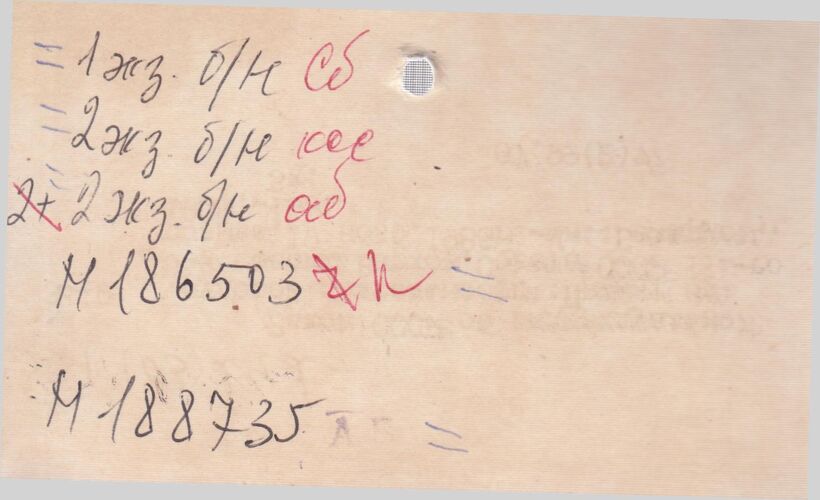 = 1 экз. б/н сб
= 2 экз б/н кое
= 2+ 2 экз. б/н аб
М 186503 h =
М 188735 =